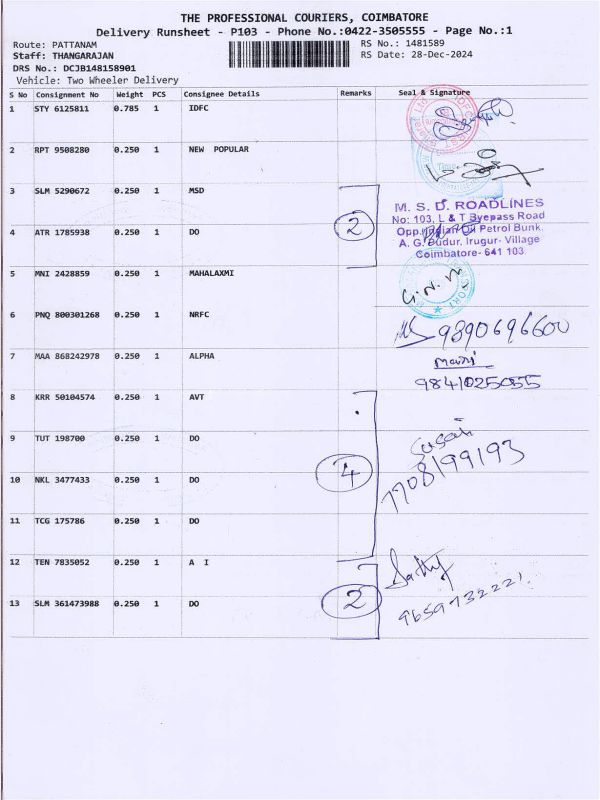 THE PROFESSIONAL COURIERS, COIMBATORE
Delivery Runsheet - P103 - Phone No.:0422-3505555 - Page No.:1
Route: PATTANAM RS No.: 1481589
Staff: THANGARAJAN RS Date: 28-Dec-2024
DRS No.: DCJB148158901
Vehicle: Two Wheeler Delivery
S No Consignment No Weight PCS Consignee Details Remarks Seal & Signature
1 STY 6125811 0.785 1 IDFC
2 RPT 9508280 0.250 1 NEW POPULAR
3 SLM 5290672 0.250 1 MSD
2
M. S. D. ROADLINES
No: 103, L & T Byepass Road
Opp. Indian Oil Petrol Bunk,
A. G. Pudur, Irugur- Village
Coimbatore- 641 103
4 ATR 1785938 0.250 1 DO
5 MNI 2428859 0.250 1 MAHALAXMI
6 PNQ 800301268 0.250 1 NRFC
9890696600
7 MAA 868242978 0.250 1 ALPHA
9841025055
8 KRR 50104574 0.250 1 AVT
9 TUT 198700 0.250 1 DO
4
7708199193
10 NKL 3477433 0.250 1 DO
11 TCG 175786 0.250 1 DO
12 TEN 7835052 0.250 1 A I
13 SLM 361473988 0.250 1 DO
2
9659732221